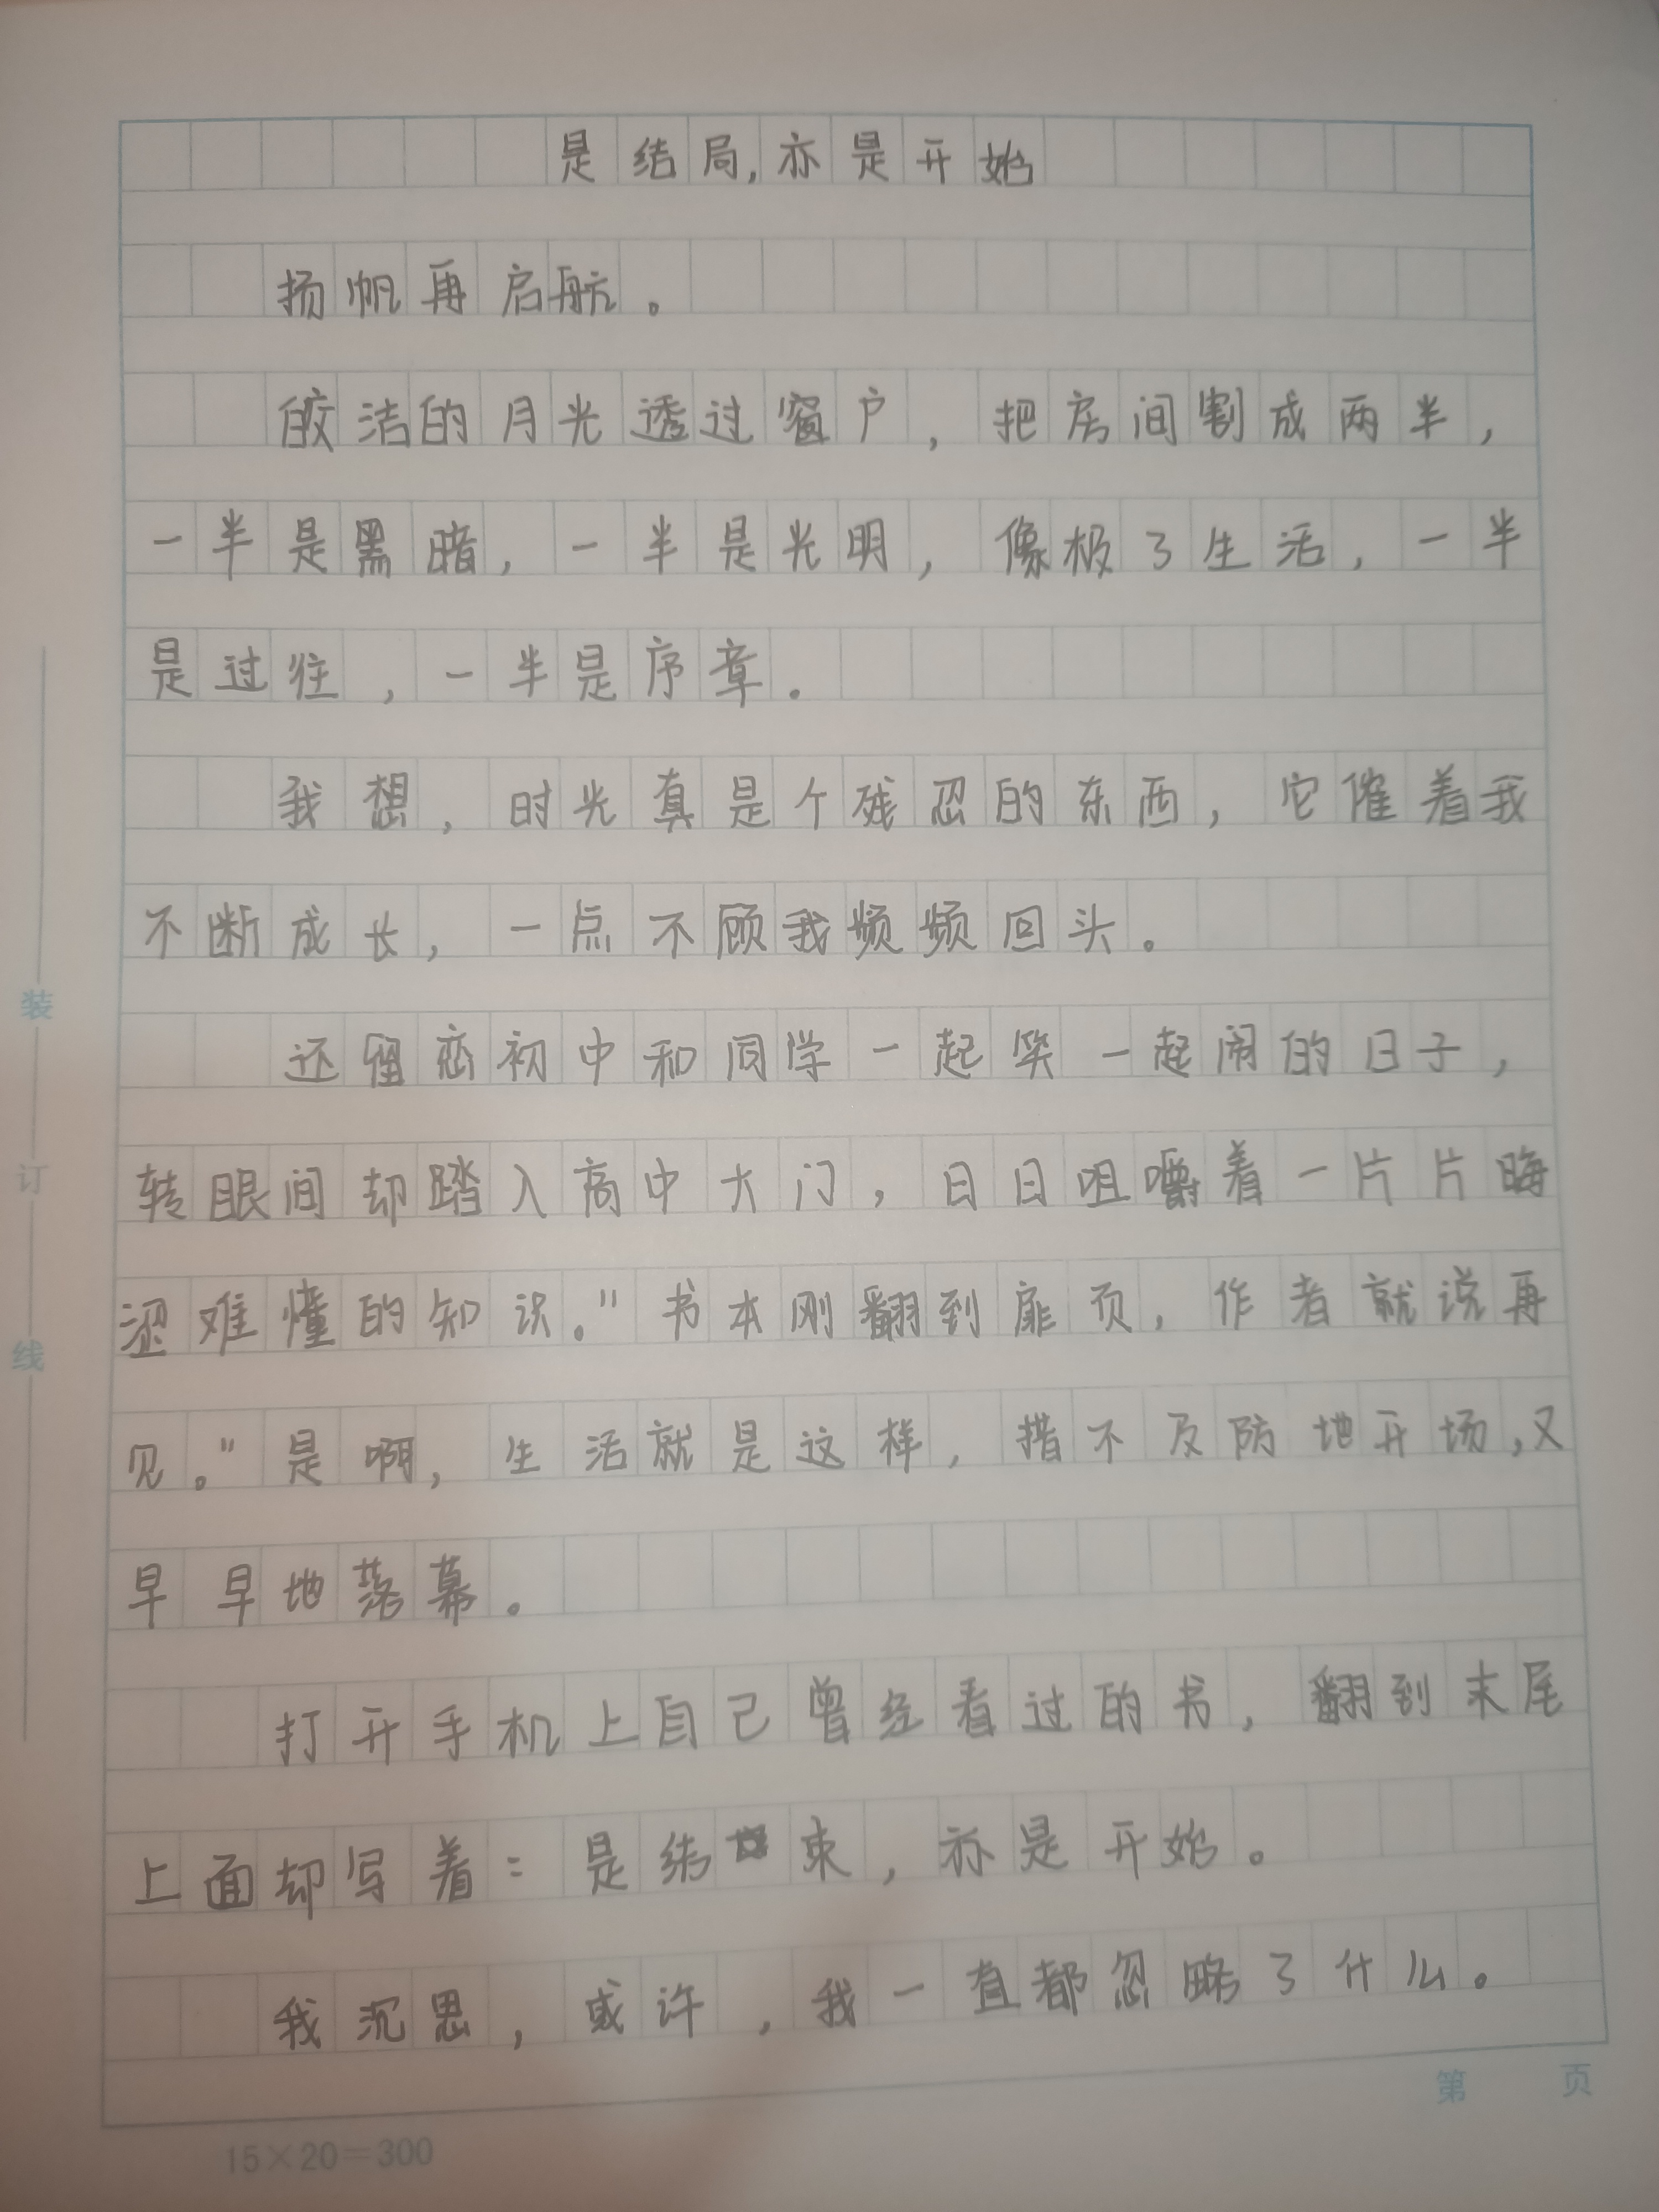 是结局,亦是开始
扬帆再启航。
皎洁的月光透过窗户，把房间割成两半，
一半是黑暗，一半是光明，像极了生活，一半
是过往，一半是序章。
我想，时光真是个残忍的东西，它催着我
不断成长，一点不顾我频频回头。
还留恋初中和同学一起笑一起闹的日子，
转眼间却踏入高中大门，日日咀嚼着一片片晦
涩难懂的知识。"书本刚翻到扉页，作者就说再
见。"是啊，生活就是这样，措不及防地开场,又
早早地落幕。
打开手机上自己曾经看过的书，翻到末尾
上面却写着：是结束，亦是开始。
我沉思，或许，我一直都忽略了什么。
装
订
线
第 页
15×20=300